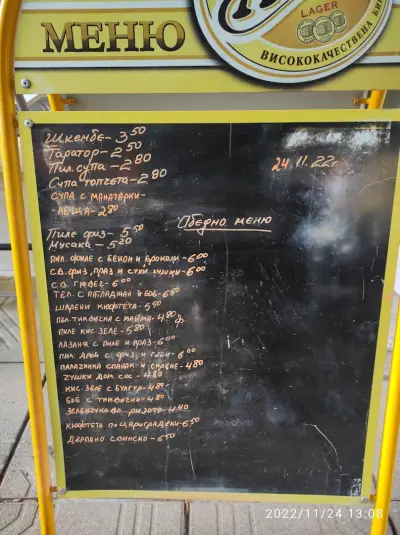 LAGER
МЕНЮ
ВИСОКОКАЧЕСТВЕНА БИ
Шкембе - 3 50
Таратор - 2 50
Пил. супа - 2 80
24.11.22г.
Супа топчета - 2 80
СУПА С МАНАТАРКИ -
- ЛЕЩА - 2 80
Обедно меню
Пиле фриз - 5 50
Мусака - 5 20
ПИЛ. ФИЛЕ С БЕКОН И БРОКОЛИ - 6 00
СВ. ФИЗ, ПРАЗ И СУХИ ЧУШКИ - 6 00
СВ. ГЮВЕЧ - 6 00
ТЕЛ. С ПАТЛАДЖАН И БОБ - 6 50
ШАРЕНИ КЮФТЕТА - 5 50
ПЪЛ. ТИКВИЧКА С КАЙМА - 4 80
ПИЛЕ КИС. ЗЕЛЕ - 5 80
ЛАЗАНЯ С ПИЛЕ И ПРАЗ - 6 00
ПИЛ. ДРОБ С ФРИЗ. И ГЪБИ - 6 00
ПАЛАЧИНКА СПАНАК И СИРЕНЕ - 4 80
ЧУШКИ ДОМ. СОС - 4 80
КИС. ЗЕЛЕ С БУЛГУР - 4 80
БОБ С ТИКВИЧКИ - 4 80
ЗЕЛЕНЧУКОВО РИЗОТО - 4 40
КЮФТЕТА ПО ЦАРИГРАДСКИ - 6 50
ДЪРПАНО СВИНСКО - 6 50
2022/11/24 13:08